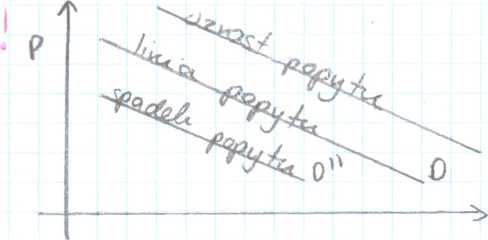 P
wzrost popytu
linia popytu
spadek popytu
D"
D